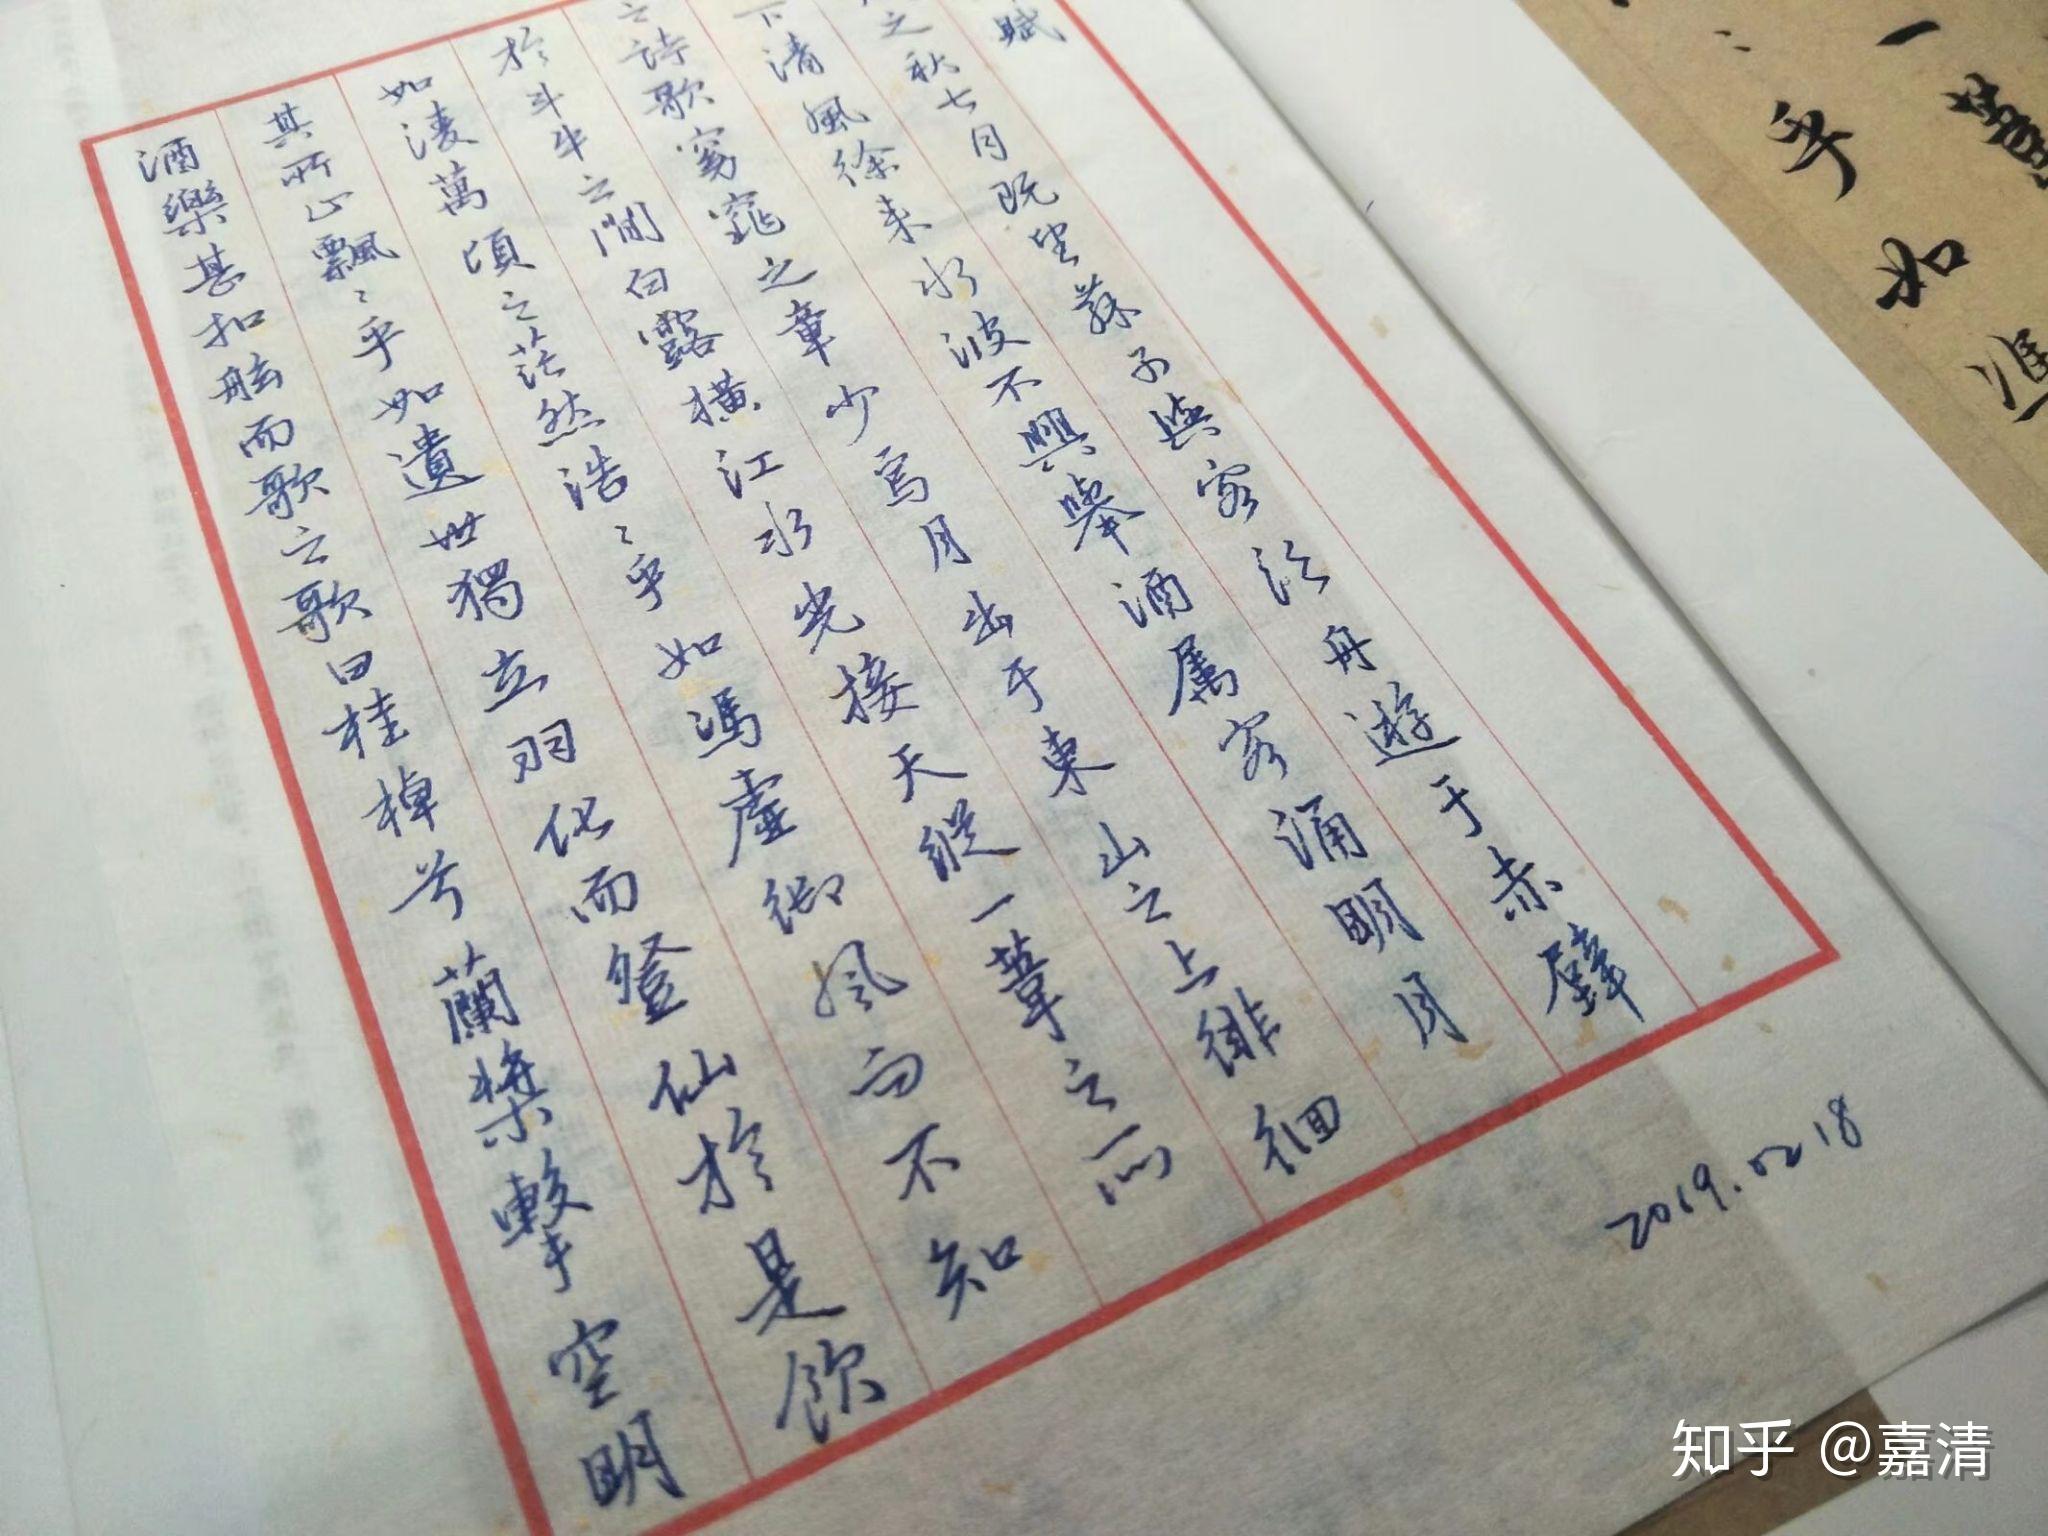 賦
之秋七月既望蘇子與客泛舟遊于赤壁
下清風徐來水波不興舉酒屬客誦明月
之詩歌窈窕之章少焉月出于東山之上徘徊
於斗牛之間白露橫江水光接天縱一葦之所
如淩萬頃之茫然浩〻乎如馮虛御風而不知
其所止飄〻乎如遺世獨立羽化而登仙於是飲
酒樂甚扣舷而歌之歌曰桂棹兮蘭槳擊空明
2019.02.18
一葦
乎如馮
知乎 @嘉清